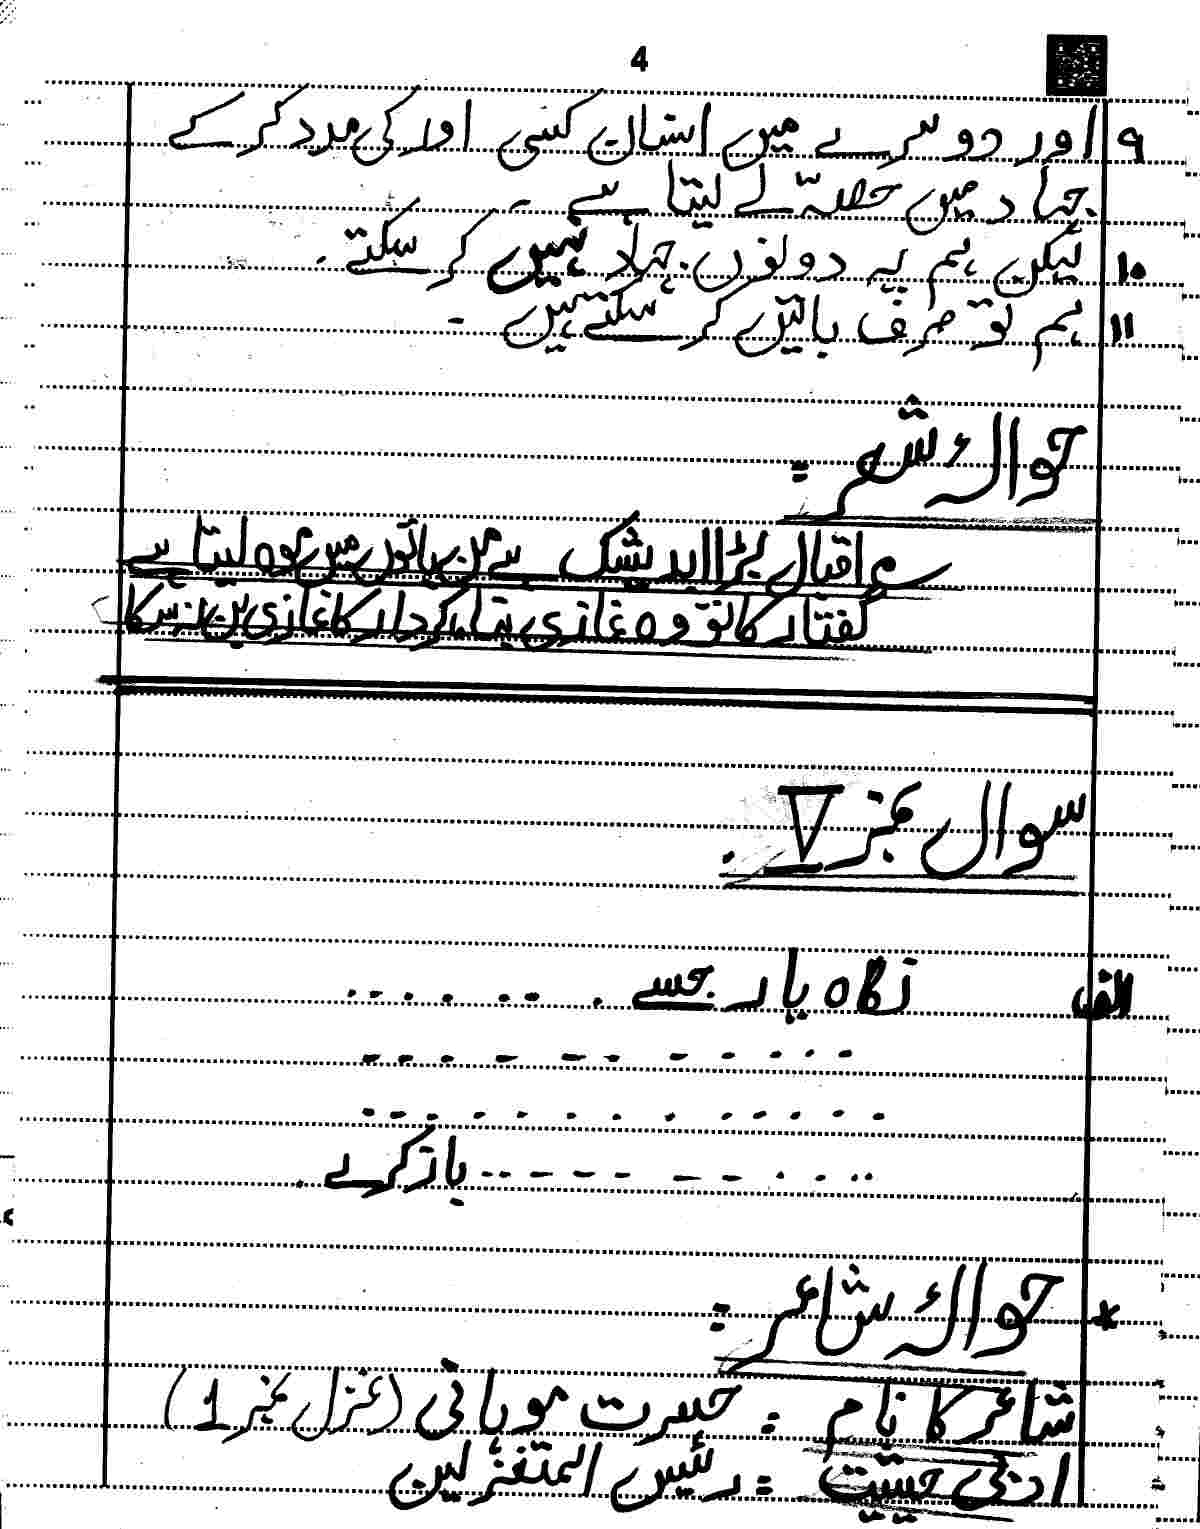 4
۹ اور دوسرے میں انسان کسی اور کی مدد کر کے
جہاد میں حصہ لے لیتا ہے۔
۱۰ لیکن ہم یہ دونوں جہاد نہیں کر سکتے۔
۱۱ ہم تو صرف باتیں کر سکتے ہیں۔
حوالۂ شعر:
؏ اقبال بڑا اپدیشک ہے من باتوں میں موہ لیتا ہے
گفتار کا تو وہ غازی بنا، کردار کا غازی بن نہ سکا
سوال نمبر V.
الف نگاہ یار جسے . . . . . . .
. . . - - - - - . - - -
. . . . . . . . . . . . .
. . . . - - - - - - . . . باز کرے.
* حوالۂ شاعر:
شاعر کا نام: حسرت موہانی (غزل نمبر 1)
ادبی حیثیت: رئیس المتغزلین